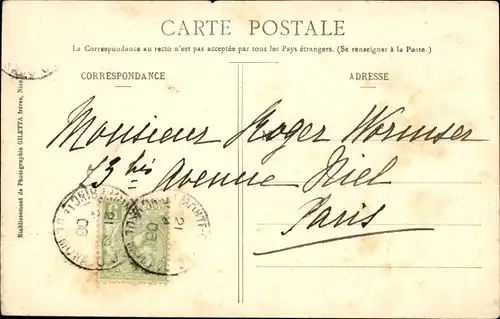 CARTE POSTALE
La Correspondance au recto n'est pas acceptée par tous les Pays étrangers. (Se renseigner à la Poste).
CORRESPONDANCE
ADRESSE
Monsieur Roger Wormser
13 bis Avenue Niel
Paris
Etablissement de Photographie GILETTA frères, Nice